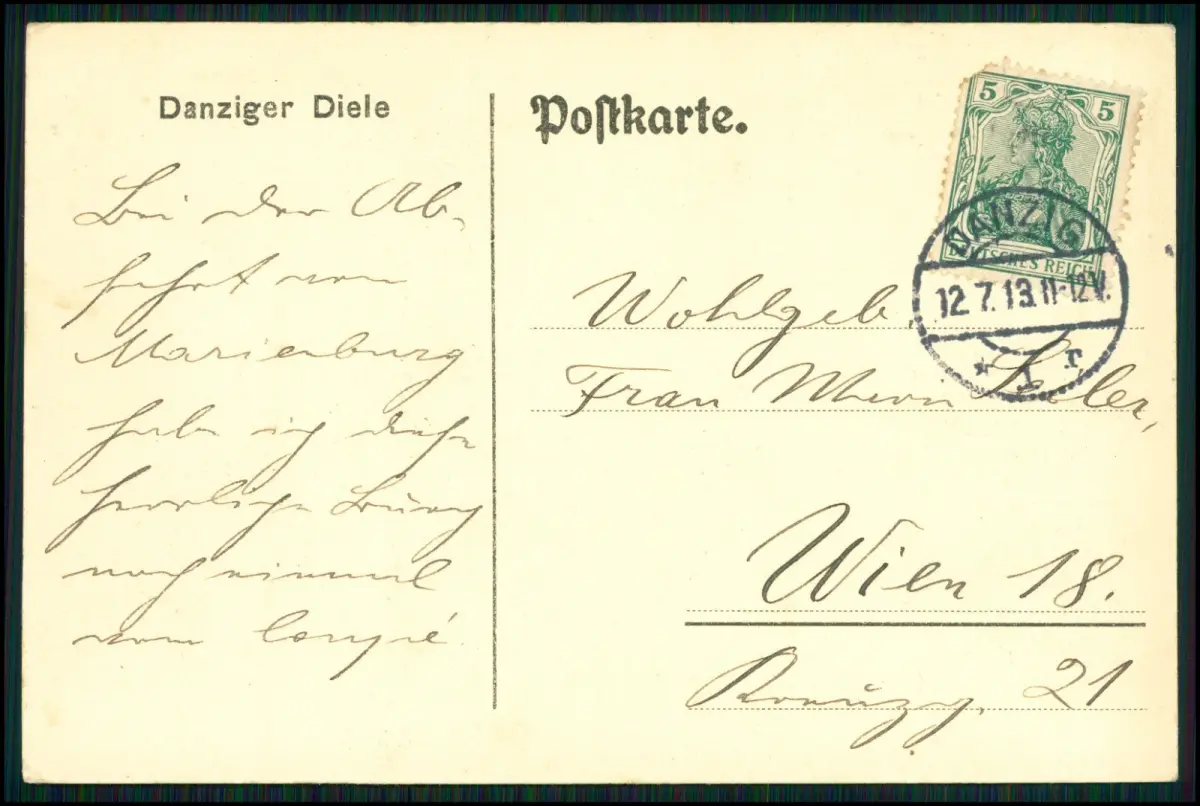 Danziger Diele
Bei der Ab-
fahrt von
Marienburg
habe ich diese
herrliche Burg
noch einmal
vom Coupé
Postkarte.
5 5
DEUTSCHES REICH
DANZIG
12.7.13.11-12V.
* 1 r
Wohlgeb.
Frau
Wien 18.
Kreuzg. 21